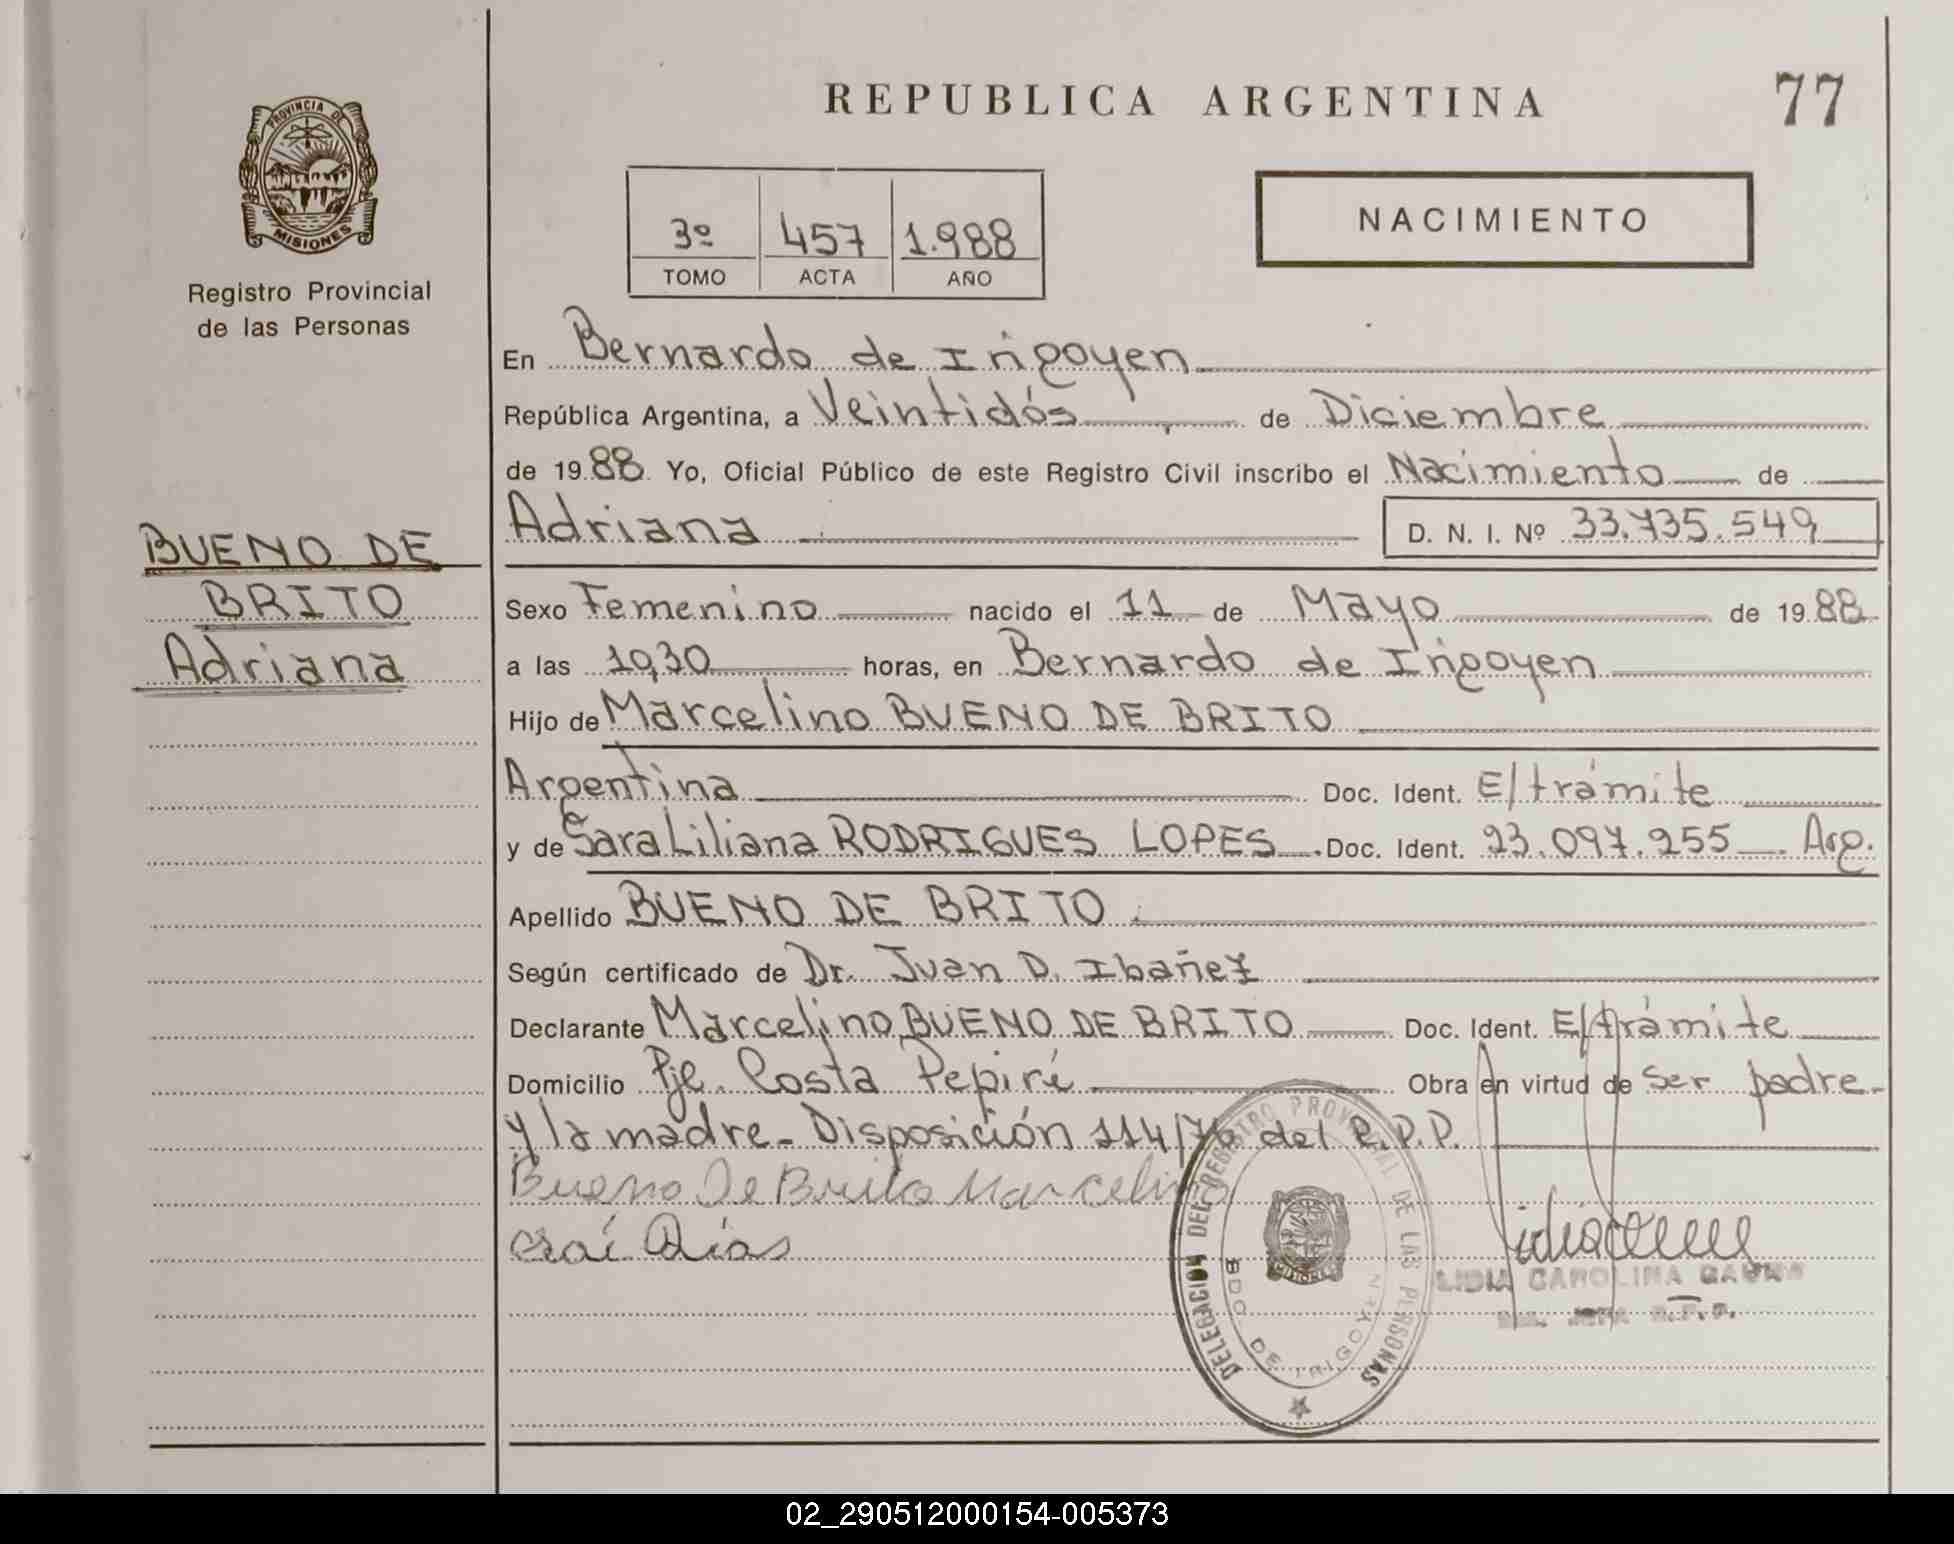 REPUBLICA ARGENTINA
77
PROVINCIA DE
MISIONES
Registro Provincial
de las Personas
3º 457 1.988
TOMO ACTA AÑO
NACIMIENTO
En Bernardo de Irigoyen
República Argentina, a Veintidós de Diciembre
de 1988 Yo, Oficial Público de este Registro Civil inscribo el Nacimiento de
Adriana D. N. I. Nº 33.735.549
BUENO DE
BRITO
Adriana
Sexo Femenino nacido el 11 de Mayo de 1988
a las 19,30 horas, en Bernardo de Irigoyen
Hijo de Marcelino BUENO DE BRITO
Argentina Doc. Ident. E/trámite
y de Sara Liliana RODRIGUES LOPES Doc. Ident. 23.097.255 Arg.
Apellido BUENO DE BRITO
Según certificado de Dr. Juan D. Ibañez
Declarante Marcelino BUENO DE BRITO Doc. Ident. E/trámite
Domicilio Pje. Costa Pepirí Obra en virtud de ser padre
y la madre - Disposición 114/76 del R.P.P.
Bueno De Brito Marcelino
DELEGACION DEL REGISTRO PROVINCIAL DE LAS PERSONAS
BDO. DE IRIGOYEN
MISIONES
LIDIA CAROLINA
JEFA R.P.P.
02_290512000154-005373